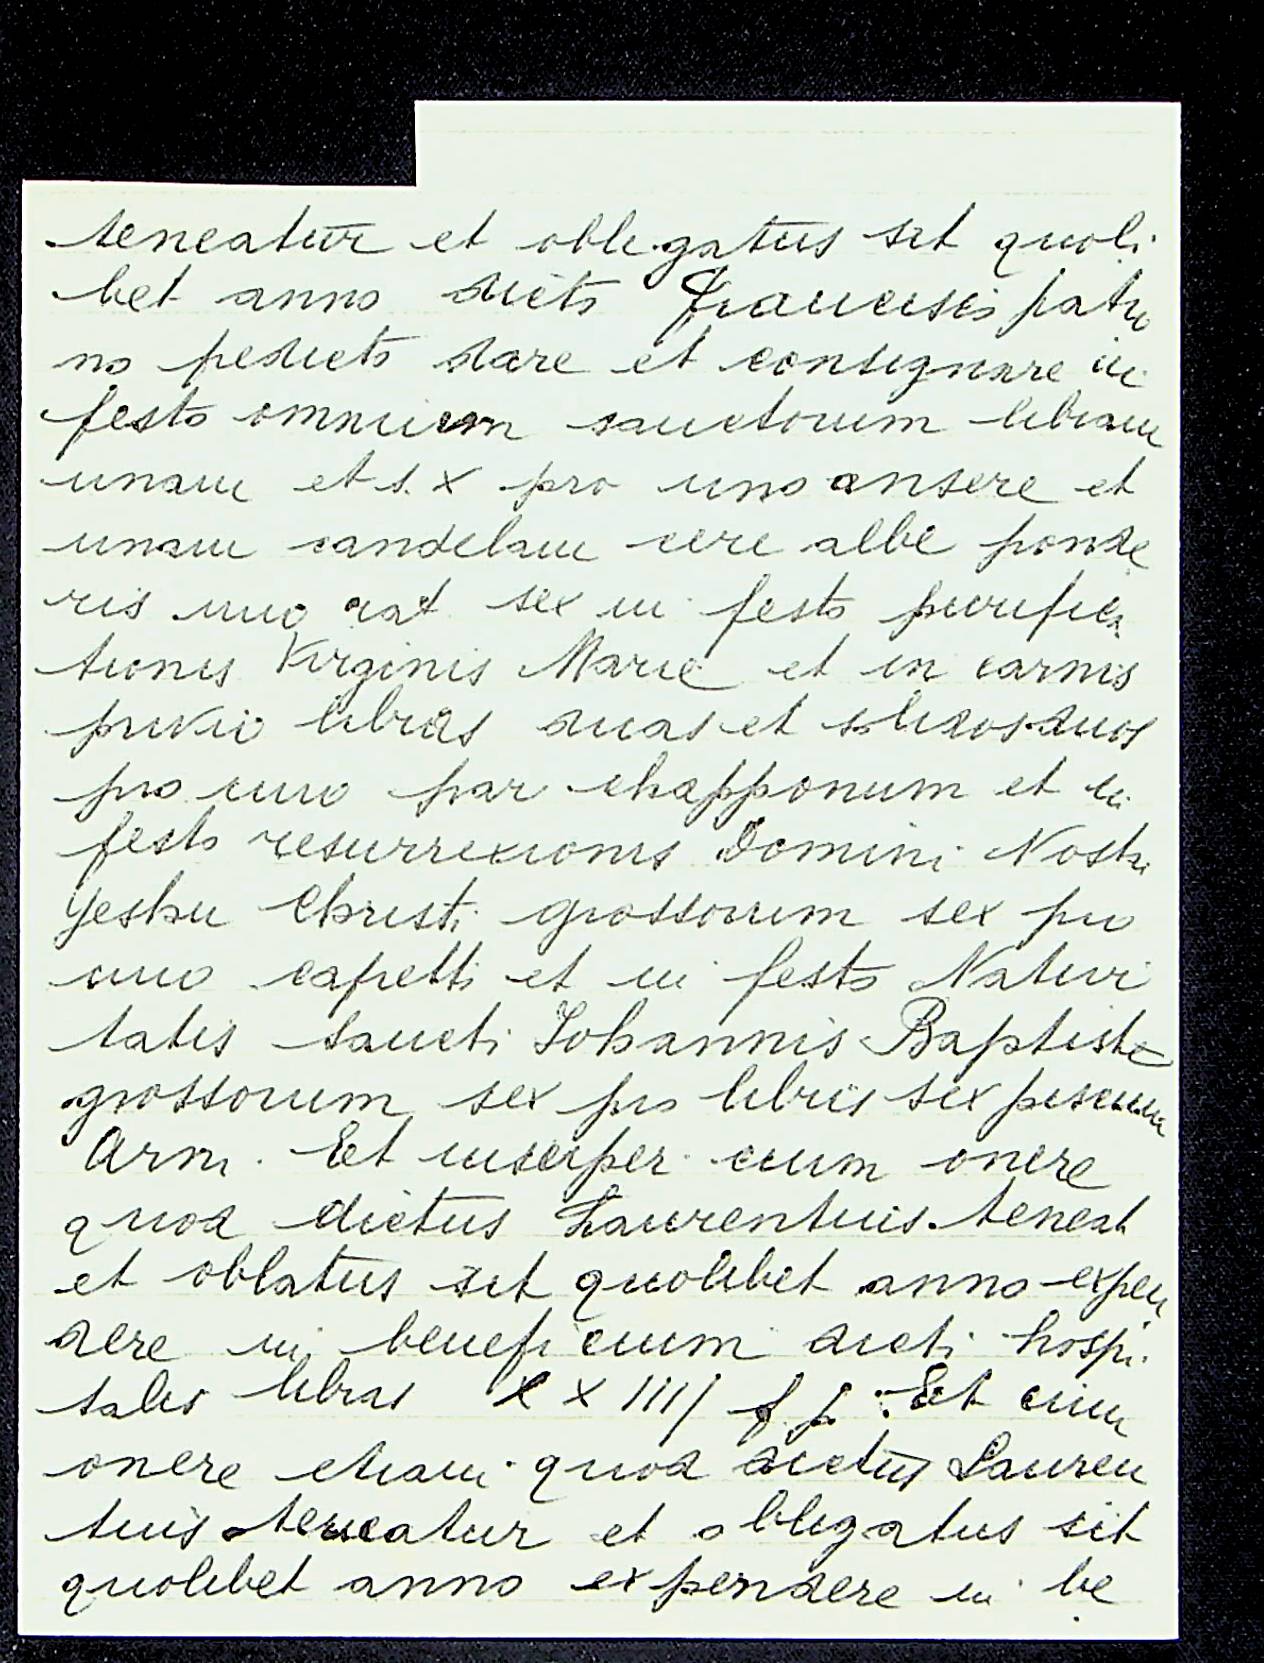 teneatur et obligatus sit quoli
bet anno dicto Francisco patro
no predicto dare et consignare in
festo omnium sanctorum libram
unam et s. X pro uno ansere et
unam candelam cere albe ponde
ris unc sex in festo purifica
tionis Virginis Marie et in carnis
privio libras duas et solidos duos
pro uno par chapponum et in
festo resurrexionis Domini Nostri
Yeshu Christi grossorum sex pro
uno capetti et in festo Nativi
tatis Sancti Johannis Baptiste
grossorum sex pro libris sex piscium
Arni. Et insuper cum onere
quod dictus Laurentius teneat
et oblatus sit quolibet anno expen
dere in beneficium dicti hospi
talis libras XXIIIJ f. p. Et cum
onere etiam quod dictus Lauren
tius teneatur et obligatus sit
quolibet anno expendere in be